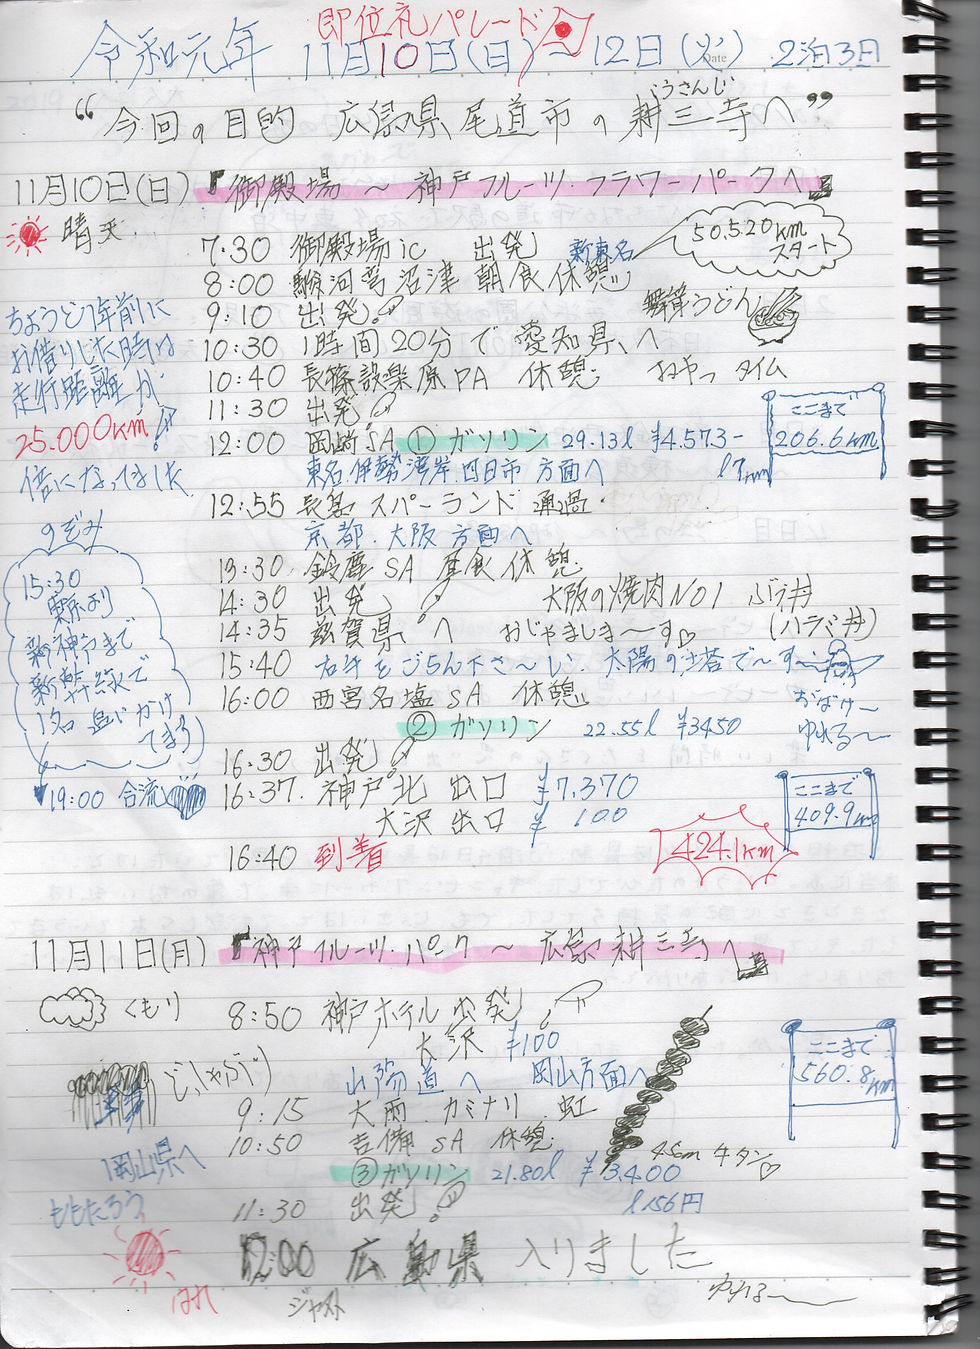 即位礼パレード
令和元年 11月10日(日)～12日(火) 2泊3日
Date
こうさんじ
“今回の目的 広島県尾道市の耕三寺へ”
11月10日(日) 『御殿場～神戸フルーツ・フラワーパークへ』
晴天
50.520km
スタート
7:30 御殿場ic 出発 新東名
8:00 駿河湾沼津 朝食休憩
舞茸うどん
9:10 出発
10:30 1時間20分で愛知県へ
10:40 長篠設楽原PA 休憩 おやつタイム
11:30 出発
12:00 岡崎SA ①ガソリン 29.13ℓ ¥4.573-
ここまで
206.6km
東名.伊勢湾岸.四日市 方面へ
12:55 長島スパーランド 通過
京都.大阪方面へ
13:30 鈴鹿SA 昼食休憩
14:30 出発
大阪の焼肉NO1 ぶう丼
(ハラミ丼)
14:35 滋賀県へ おじゃましま～す
15:40 右手をご らん下さ～い.太陽の塔で～す
16:00 西宮名塩SA 休憩
おばけ～
ゆれる～
②ガソリン 22.55ℓ ¥3450
16:30 出発
16:37. 神戸北 出口 ¥7.370
大沢 出口 ¥100
ここまで
409.9km
16:40 到着
424.1km
ちょうど1年前に
お借りした時は
走行距離が
25.000km!
倍になってました
のぞみ
15:30
東京より
新神戸まで
新幹線で
1名 追いかけ
てまーす
19:00 合流
11月11日(月) 『神戸フルーツ・パーク～広島耕三寺へ』
くもり
8:50 神戸ホテル出発
大沢 ¥100
どしゃぶり
山陽道へ 岡山方面へ
ここまで
560.8km
9:15 大雨 カミナリ 虹
10:50 吉備SA 休憩
45cm 牛タン
岡山県へ
③ガソリン 21.80ℓ ¥3,400
ℓ156円
ももたろう
11:30 出発
12:00 広島県 入りました
はれ
ジャスト
ゆれる～